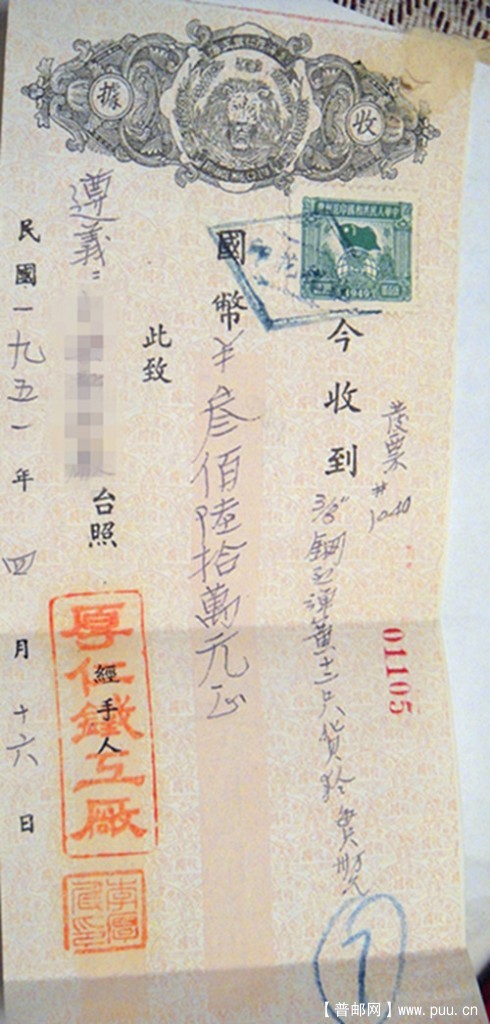 收據
發票#1040
01105
今收到3/8"鋼正彈簧十二只貨
國幣¥叄佰陸拾萬元正
此致
遵義
台照
經手人
厚仁鐵工廠
民國一九五一年四月十六日
1949
【普邮网】www.puu.cn